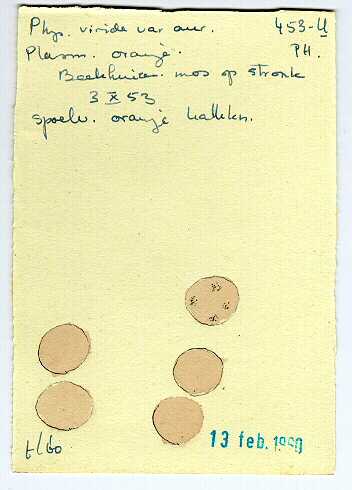 Phys. viride var aur. 453-U
Plasm. oranje. PH.
Beekhuizen. mos op stronk
3 X 53
spoelv. oranje kalkkn.
t/60
13 feb. 1960